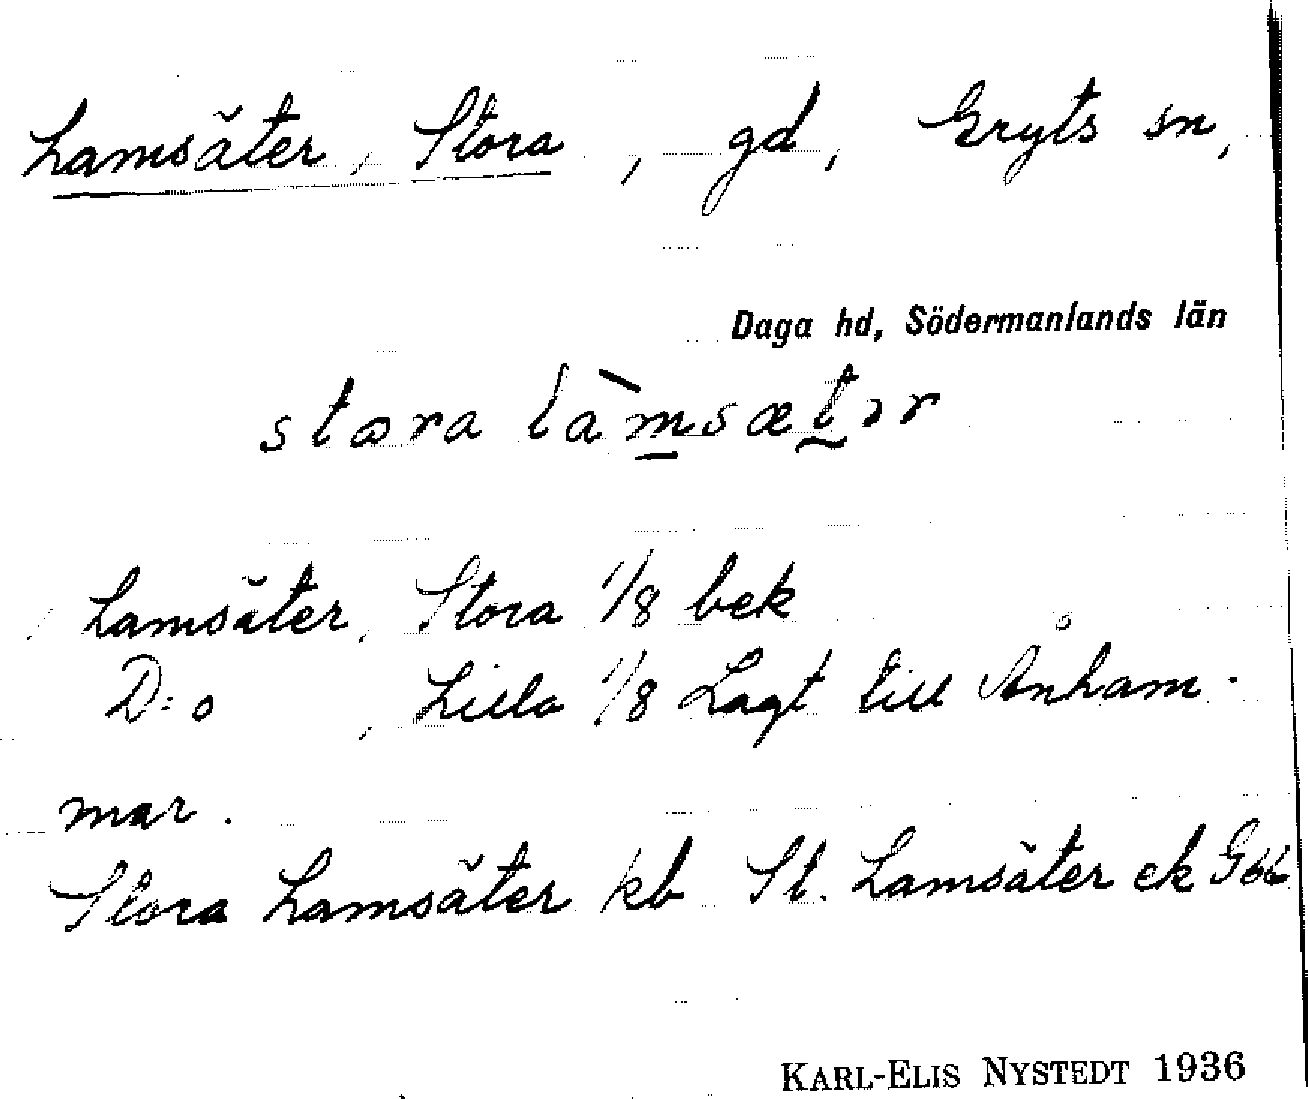 Lamsäter, Stora, gd, Gryts sn,
Daga hd, Södermanlands län
stora làmsætər
Lamsäter, Stora 1/8 bek
D:o , Lilla 1/8 Lagt till Ånham-
mar.
Stora Lamsäter kb St. Lamsäter ek G66
KARL-ELIS NYSTEDT 1936